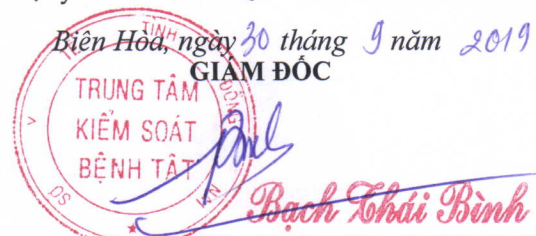 Biên Hòa, ngày 30 tháng 9 năm 2019
GIÁM ĐỐC
TỈNH ĐỒNG
TRUNG TÂM
KIỂM SOÁT
BỆNH TẬT
SỞ Y
Bạch Thái Bình